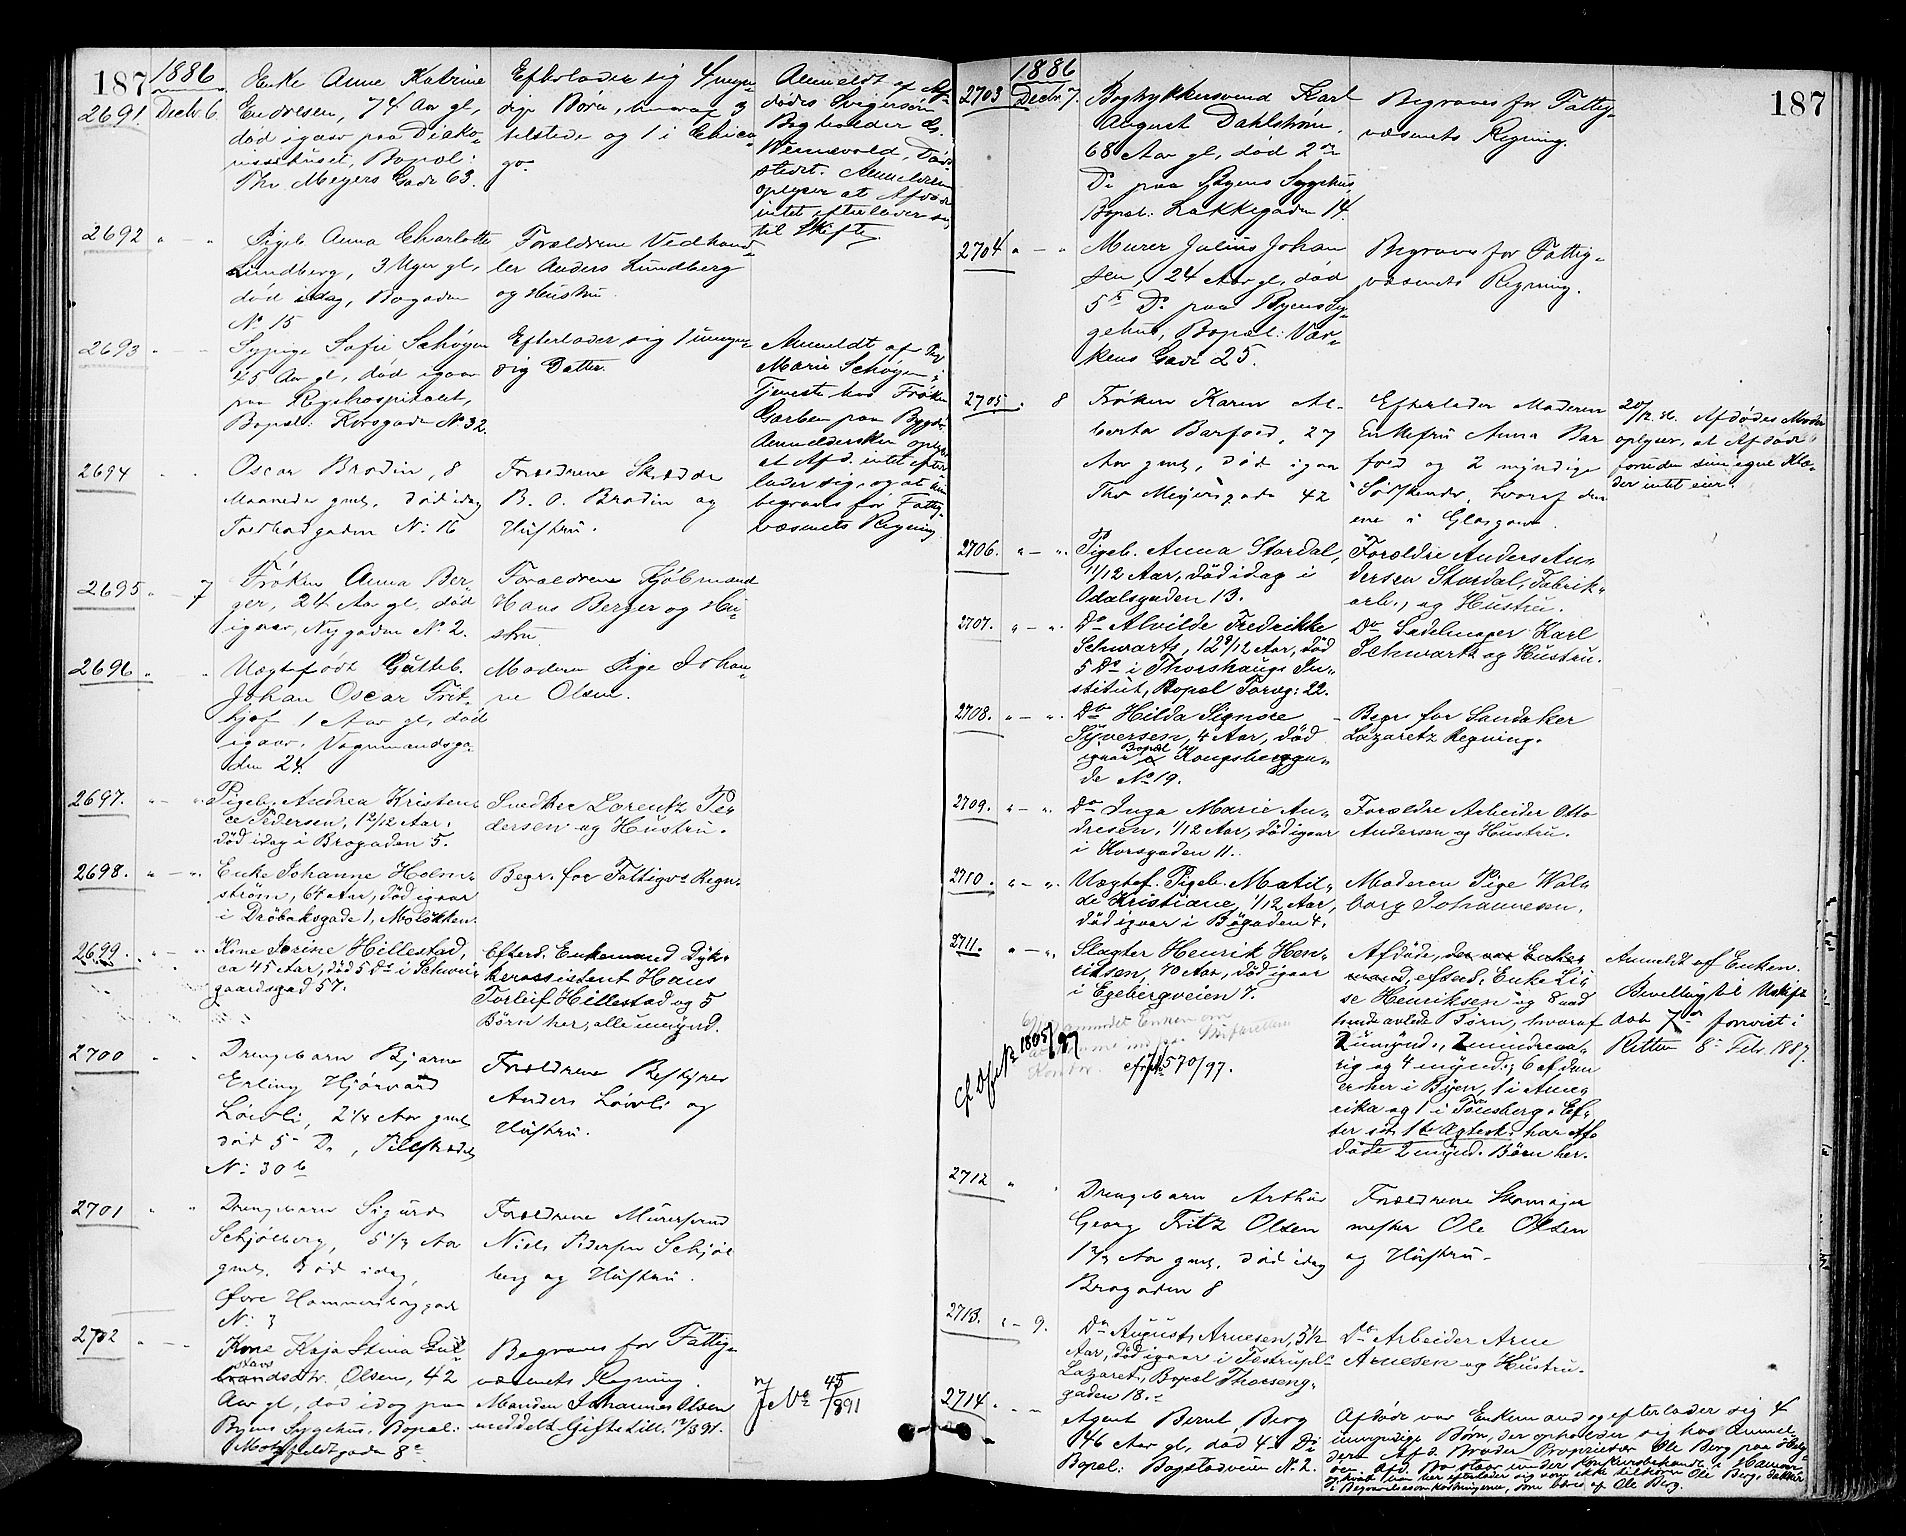 187
1886
2691 Decbr 6.
Enke Anne Katrine
Endresen, 74 Aar gl,
død igaar paa Diako-
nissehuset, Bopæl:
Thv. Meyers Gade 63.
Efterlader sig 4 umyn-
dige Børn, hvoraf 3
tilstede og 1 i Chica-
go.
Anmeldt af Af-
dødes Svigersøn
Bogholder
Vennevold,
stedet. Anmelderen
oplyser at Afdøde
intet efterlader sig
til Skifte.
2692 " - "
Pigeb. Anna Charlotte
Lundberg, 3 Uger gl,
død idag, Bogaden
No 15
Forældrene Vedhand-
ler Anders Lundberg
og Hustru.
2693 " - "
Sypige Sofie Schøyen
45 Aar gl, død igaar
paa Rigshospitalet,
Bopæl: Korsgade No 32.
Efterlader sig 1 umyn-
dig Datter.
Anmeldt af
Marie Schøyen i
Tjeneste hos Frøken
Garben paa Bygdø.
Anmeldersken oplyser
at Afd. intet efter-
lader sig, og at hun
begraves for Fattig-
væsnets Regning.
2694 " "
Oscar Brodin, 8
Maaneder gml, død idag
Toldbodgaden No 16
Forældrene Skrædder
B. O. Brodin og
Hustru.
2695 " - 7
Frøken Anna Ber-
ger, 24 Aar gl, død
igaar, Nygaden No 2.
Forældrene Kjøbmand
Hans Berger og Hu-
stru
2696 " "
Uægtefødt Gutteb.
Johan Oscar Frit-
hjof 1 Aar gl, død
igaar, Vognmandsga-
den 24.
Moderen Pige Johan-
ne Olsen.
2697. " - "
Pigeb. Andrea Kristen-
ce Pedersen, 12/12 Aar,
død idag i Brogaden 5.
Snedker Lorentz Pe-
dersen og Hustru.
2698. " - "
Enke Johanne Holm-
strøm, 64 Aar, død igaar
i Drøbaksgade 1, Moløkken.
Begr. for Fattigvs Regn.
2699. " - "
Kone Jorine Hillestad,
ca 45 Aar, død 5 Ds i Schwei-
gaardsgad 57.
Efterl. Enkemand Dyk-
kerassistent Hans
Torleif Hillestad og 5
Børn her, alle umynd.
2700 " "
Drengebarn Bjarne
Erling Hjørvard
Løivli, 2 1/4 Aar gml
død 5 D., Pilestrædet
No 30 b
Forældrene
Anders Løivli og
Hustru.
2701 " "
Drengebarn Sigurd
Schjølberg, 5 1/2 Aar
gml. Død idag,
Øvre Hammersborggade
No 3
Forældrene Murersvend
Niels Pedersen Schjøl-
berg og Hustru.
2702 " - "
Kone Kaja Stina Gul-
brandsdtr. Olsen, 42
Aar gl, død idag paa
Byens Sygehus, Bopæl:
Motzfeldtgade 8c
Begraves for Fattig-
væsnets Regning.
Manden Johannes Olsen
meddelt Giftetill. 12/3 91.
J No 45/1891
187
1886
2703 Decbr. 7.
Bogtrykkersvend Karl
August Dahlstrøm,
68 Aar gl, død 2den
Ds paa Byens Sygehus,
Bopæl: Lakkegaden 14.
Begraves for Fattig-
væsnets Regning.
2704 " - "
Murer Julius Johan-
sen, 24 Aar gl, død
5te Ds paa Byens Sy-
gehus, Bopæl: Vær-
kens Gade 25.
Begraves for Fattig-
væsnets Regning.
2705 " 8
Frøken Karen Al-
berta Barfoed, 27
Aar gml, død igaar
Thv Meyersgade 42
Efterlader Moderen
Enkefru Anna Bar
foed og 2 myndige
Sødskende, hvoraf den
ene i Glasgow.
20/12. 86. Afdødes Moder
oplyser, at Afdøde
foruden sine egne Klæ-
der intet eier.
2706. " - "
Pigeb. Anna Stordal,
11/12 Aar, død idag i
Odalsgaden 13.
Forældre Anders An-
dersen Stordal, Fabrik-
arb., og Hustru.
2707. " - "
Do Alvilde Fredrikke
Schwartz, 12 9/12 Aar, død
5 Ds i Thorshaugs In-
stitut, Bopæl Torvg: 22.
Do Sadelmager Karl
Schwartz og Hustru.
2708. " - "
Do Hilda Signore
Syversen, 4 Aar, død
igaar Bopæl Kongsbergga-
de No 19.
Begr. for Sandaker
Lazarets Regning.
2709. " - "
Do Inga Marie An-
dresen, 1/12 Aar, død igaar
i Korsgaden 11.
Forældre Arbeider Otto
Andersen og Hustru.
2710. " - "
Uægtef. Pigeb. Matil-
de Kristiane, 1/12 Aar,
død igaar i Bøgaden 4.
Moderen Pige Wal-
borg Johannesen.
2711. " - "
Slagter Henrik Hen-
riksen, 70 Aar, død igaar
i Egebergveien 7.
Afdøde, der var Enke-
mand, efterl. Enke Li-
se Henriksen og 8 med
hende avlede Børn, hvoraf
2 umynd., 2 mindreaa-
rig og 4 mynd; 6 af dem
er her i Byen, 1 i Ame-
rika og 1 i Tønsberg. Ef-
ter sit 1te Ægtesk. har Af-
døde 2 mynd. Børn her.
Anmeldt af Enken.
Bevilling til Uskifte
dat 7de forevist i
Retten 8 Febr. 1887.
1805/97
570/97.
2712 " "
Drengebarn Arthur
Georg Fritz Olsen
1 3/4 Aar gml, død idag
Brogaden 8
Forældrene Skomager
mester Ole Olsen
og Hustru.
2713. " - 9.
Do August Arnesen, 5 1/2
Aar, død igaar i Tøstrupl-
Lazaret, Bopæl Thorseng-
gaden 18.
Do Arbeider Arne
Arnesen og Hustru.
2714. " - "
Agent Bernt Berg
46 Aar gl, død 4 Ds
Bopæl: Bogstadveien No 2.
Afdøde var Enkemand og efterlader sig 4
umyndige Børn, der opholder sig hos Anmel-
deren Afd. Broder Proprietær Ole Berg paa
Afd. Bo staar under Konkursbehandl. i Hamar
og hvad han her efterlader sig vom ikke tilkom Ole Berg, dækker
Begravelsesomkostningerne, som bæres af Ole Berg.